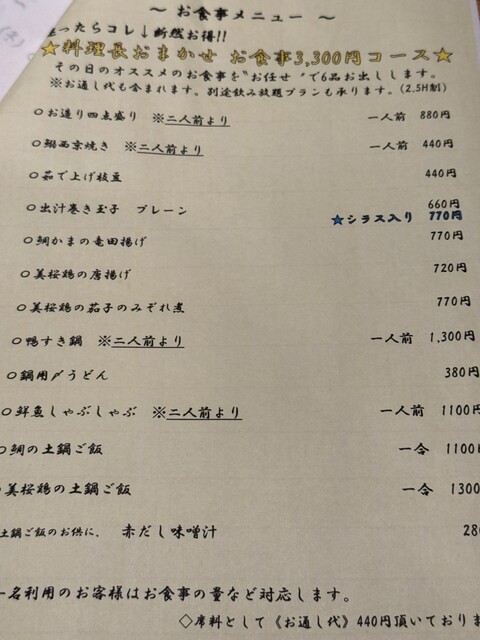 ～ お食事メニュー ～
ったらコレ↓断然お得!!
★料理長おまかせ お食事3,300円コース★
その日のオススメのお食事を〝お任せ〟で6品お出しします。
※お通し代も含まれます。別途飲み放題プランも承ります。(2.5H制)
○お造り四点盛り ※二人前より 一人前 880円
○鰯西京焼き ※二人前より 一人前 440円
○茹で上げ枝豆 440円
○出汁巻き玉子 プレーン 660円
★シラス入り 770円
○鯛かまの竜田揚げ 770円
○美桜鶏の唐揚げ 720円
○美桜鶏の茄子のみぞれ煮 770円
○鴨すき鍋 ※二人前より 一人前 1,300円
○鍋用〆うどん 380円
○鮮魚しゃぶしゃぶ ※二人前より 一人前 1100円
○鯛の土鍋ご飯 一合 1100円
○美桜鶏の土鍋ご飯 一合 1300
土鍋ご飯のお供に、 赤だし味噌汁 280
一名利用のお客様はお食事の量など対応します。
◇席料として《お通し代》440円頂いておりま